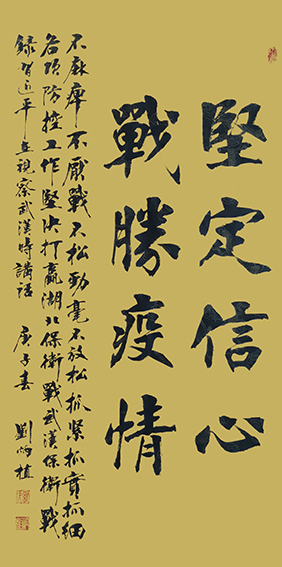 堅定信心
戰勝疫情
不麻痺不厭戰不松勁毫不放松抓緊抓實抓細
各項防控工作堅決打贏湖北保衛戰武漢保衛戰
録習近平在視察武漢時講話 庚子春 劉炳植